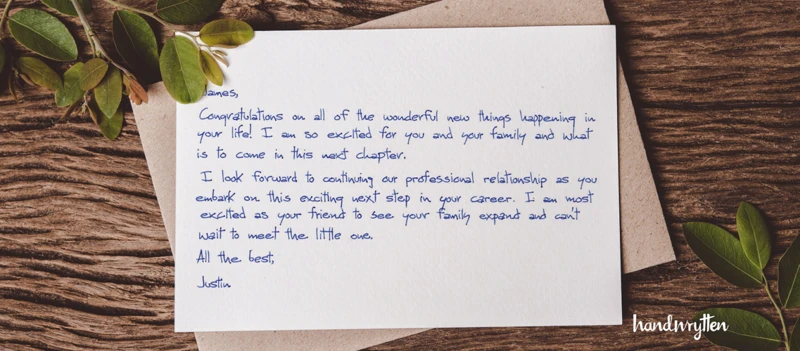 James,
Congratulations on all of the wonderful new things happening in
your life! I am so excited for you and your family and what
is to come in this next chapter.
I look forward to continuing our professional relationship as you
embark on this exciting next step in your career. I am most
excited as your friend to see your family expand and can't
wait to meet the little one.
All the best,
Justin
handwrytten